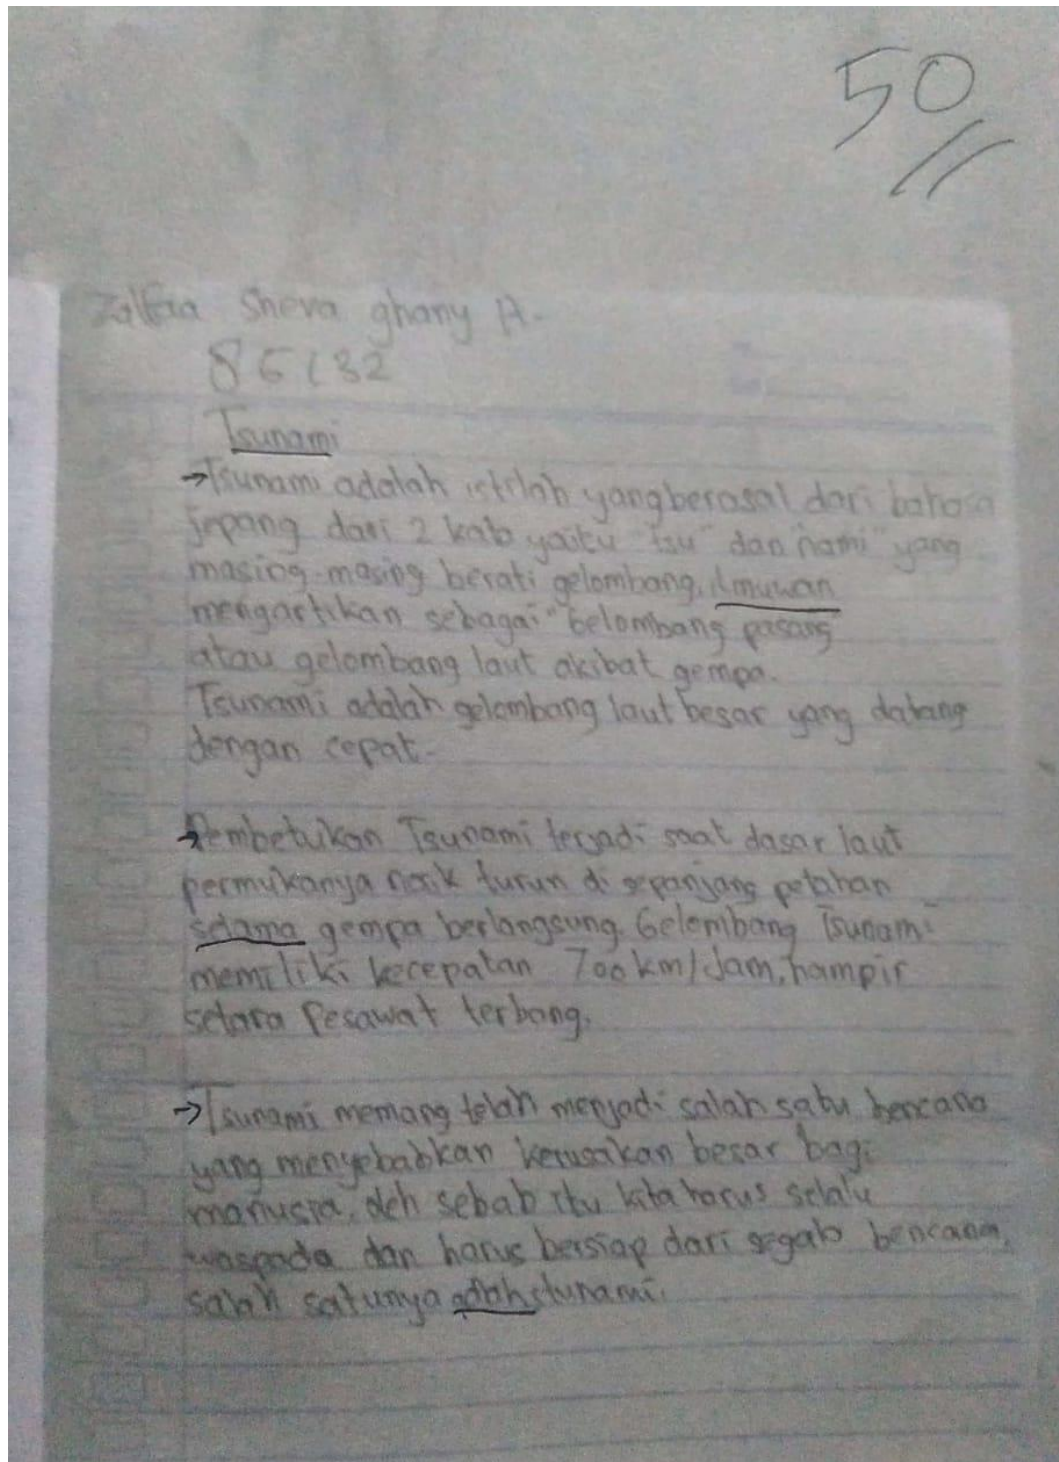 50
Zalfaa Sheva ghany A.
8G / 32
Tsunami
→Tsunami adalah istilah yang berasal dari bahasa
jepang dari 2 kata yaitu "tsu" dan "nami" yang
masing-masing berati gelombang, ilmuwan
mengartikan sebagai "Gelombang pasang"
atau gelombang laut akibat gempa.
Tsunami adalah gelombang laut besar yang datang
dengan cepat.
→Pembetukan Tsunami terjadi saat dasar laut
permukanya naik turun di sepanjang patahan
selama gempa berlangsung. Gelembang Tsunami
memiliki kecepatan 700 km/Jam, hampir
setara Pesawat terbang.
→Tsunami memang telah menjadi salah satu bencana
yang menyebabkan kerusakan besar bagi
manusia, oleh sebab itu kita harus selalu
waspada dan harus bersiap dari segala bencana,
salah satunya adlah stunami.